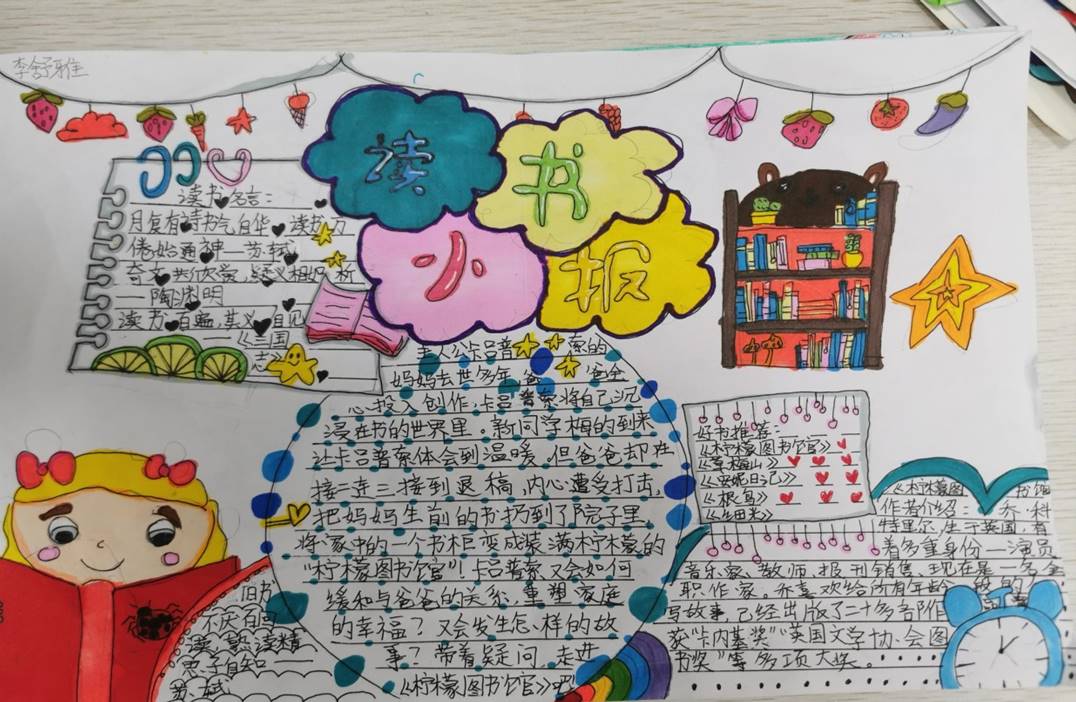 李舒雅
读书
小报
读书名言：
腹有诗书气自华，读书万
倦始通神—苏轼
奇文共欣赏，疑义相与析
—陶渊明
读书百遍，其义自见
—《三国
志》
主人公卡吕普索的
妈妈去世多年，爸爸全
心投入创作，卡吕普索将自己沉
浸在书的世界里。新同学梅的到来
让卡吕普索体会到温暖，但爸爸却在
接二连三接到退稿，内心遭受打击，
把妈妈生前的书扔到了院子里，
将家中的一个书柜变成装满柠檬的
“柠檬图书馆”！卡吕普索又会如何
缓和与爸爸的关系，重塑家庭
的幸福？又会发生怎样的故
事？带着疑问，走进
《柠檬图书馆》吧
好书推荐：
《柠檬图书馆》
《草房山》
《安妮日记》
《根鸟》
《柠檬图书馆
作者介绍：乔·科
特里尔，生于英国，有
着多重身份—演员
音乐家、教师、报刊销售，现在是一名全
职作家。乔喜欢给所有年龄的
写故事，已经出版了二十多部作
获“卡内基奖”“英国文学协会图
书奖”等多项大奖。
旧书
不厌百回
读，熟读精
思子自知
苏轼